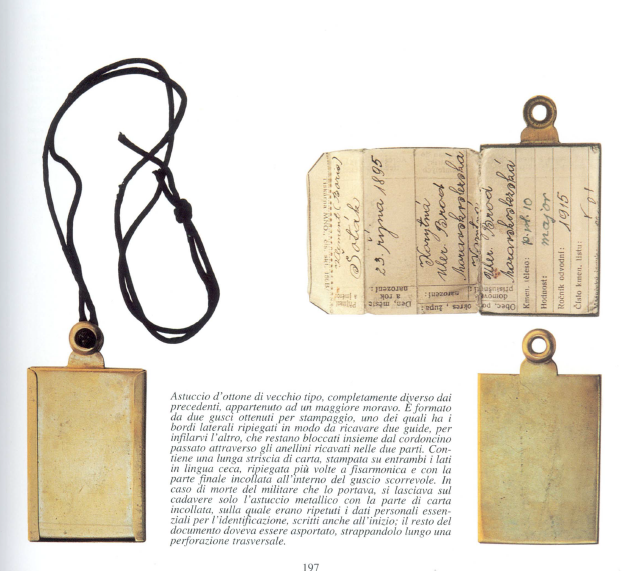 Soták
23. října 1895
Uher. Brod
moravskoslezská
Uher. Brod
moravskoslezská
Kmen. těleso:
Hodnost: major
Ročník odvodní: 1915
Číslo kmen. listu:
Příjmení
Den, měsíc
a rok
narození:
Obec, pol. okres, župa:
narození:
domovské
Astuccio d'ottone di vecchio tipo, completamente diverso dai
precedenti, appartenuto ad un maggiore moravo. È formato
da due gusci ottenuti per stampaggio, uno dei quali ha i
bordi laterali ripiegati in modo da ricavare due guide, per
infilarvi l'altro, che restano bloccati insieme dal cordoncino
passato attraverso gli anellini ricavati nelle due parti. Con-
tiene una lunga striscia di carta, stampata su entrambi i lati
in lingua ceca, ripiegata più volte a fisarmonica e con la
parte finale incollata all'interno del guscio scorrevole. In
caso di morte del militare che lo portava, si lasciava sul
cadavere solo l'astuccio metallico con la parte di carta
incollata, sulla quale erano ripetuti i dati personali essen-
ziali per l'identificazione, scritti anche all'inizio; il resto del
documento doveva essere asportato, strappandolo lungo una
perforazione trasversale.
197